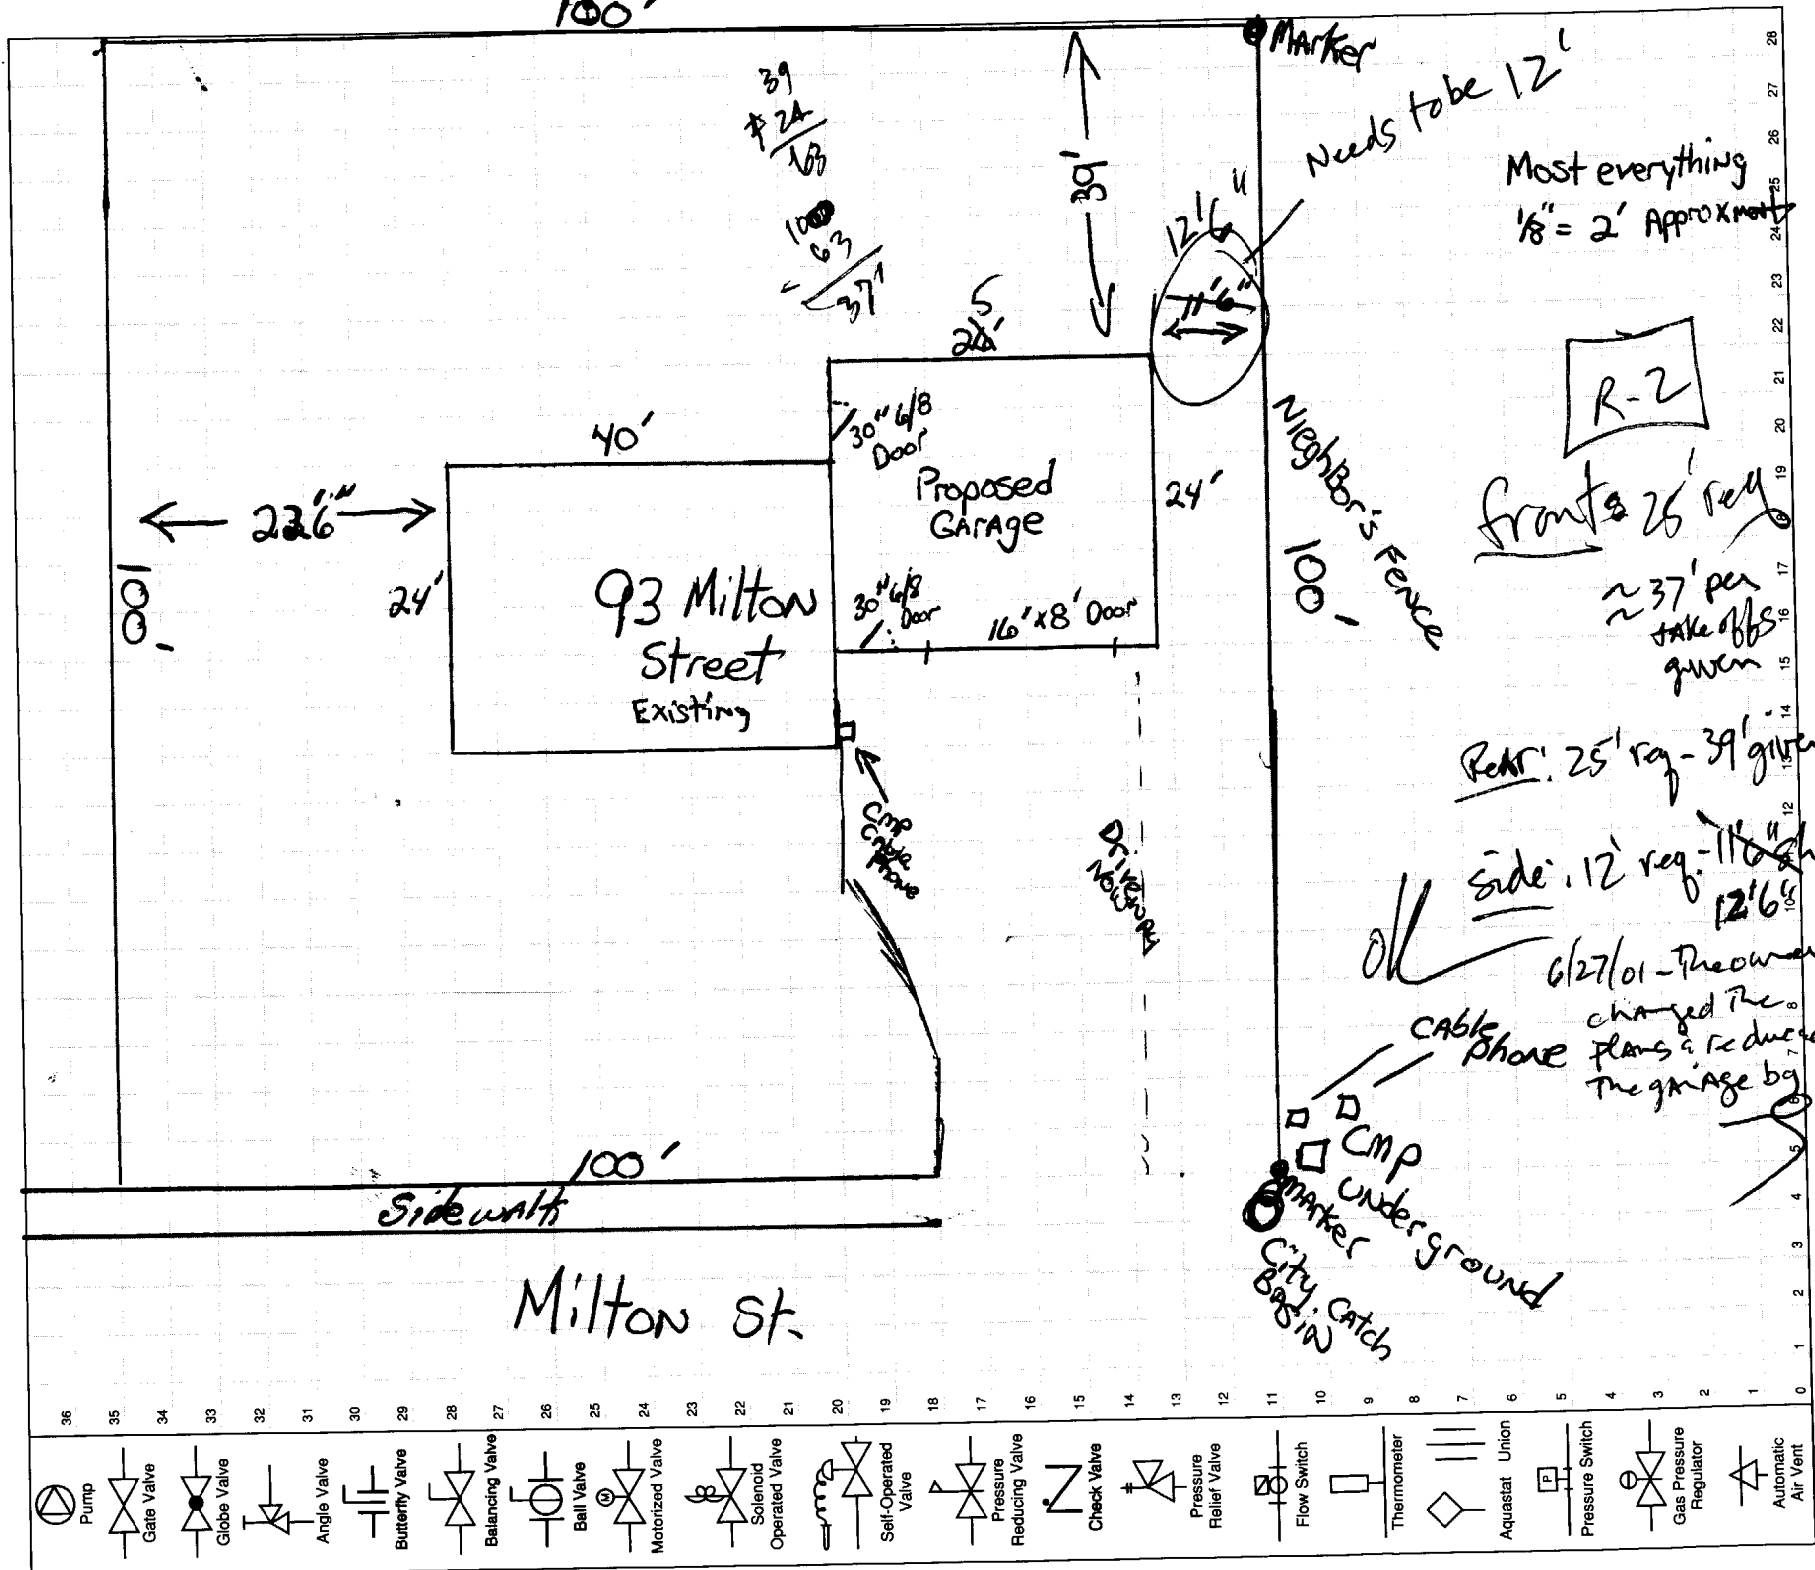 100'
Marker
Needs to be 12'
39
+ 24
63
100
- 63
37'
39'
12'6"
11'6"
Most everything
1/8" = 2' Approx
R-2
25
40'
30" 6/8
Door
Proposed
Garage
24'
22'6"
100'
24'
93 Milton
Street
Existing
30" 6/8
Door
16' x 8' Door
Nieghbor's Fence
100'
front 25' req
~37' per
take offs
given
Rear: 25' req - 39' given
side: 12' req. - 11'6"
12'6"
OK
6/27/01 - The owner
changed the
plans & reduced
the garage by
CMP
Cable
Phone
Driveway
Now
Cable
Phone
CMP
Underground
Marker
City Catch
Basin
100'
Sidewalk
Milton St.
28
27
26
25
24
23
22
21
20
19
18
17
16
15
14
13
12
11
10
9
8
7
6
5
4
3
2
1
36 35 34 33 32 31 30 29 28 27 26 25 24 23 22 21 20 19 18 17 16 15 14 13 12 11 10 9 8 7 6 5 4 3 2 1 0
Pump
Gate Valve
Globe Valve
Angle Valve
Butterfly Valve
Balancing Valve
Ball Valve
M
Motorized Valve
S
Solenoid
Operated Valve
Self-Operated
Valve
Pressure
Reducing Valve
Check Valve
Pressure
Relief Valve
Flow Switch
Thermometer
Aquastat
Union
P
Pressure Switch
Gas Pressure
Regulator
Automatic
Air Vent